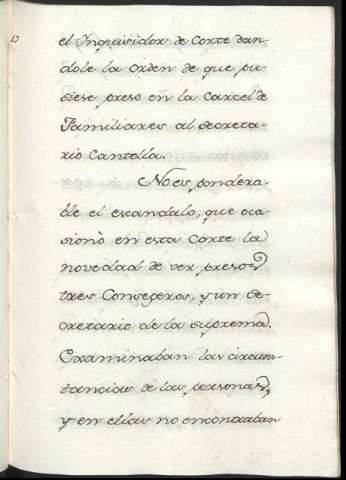 17
el Inquisidor de Corte dan-
dole la orden de que pu-
siese preso en la Carcel de
Familiares al Secreta-
rio Cantolla.
No es pondera-
ble el escandalo, que oca-
sionò en esta Corte la
novedad de ver presos
tres Consegeros, y un Se-
cretario de la Suprema.
Examinaban las circuns-
tancias de las personas,
y en ellas no encontraban